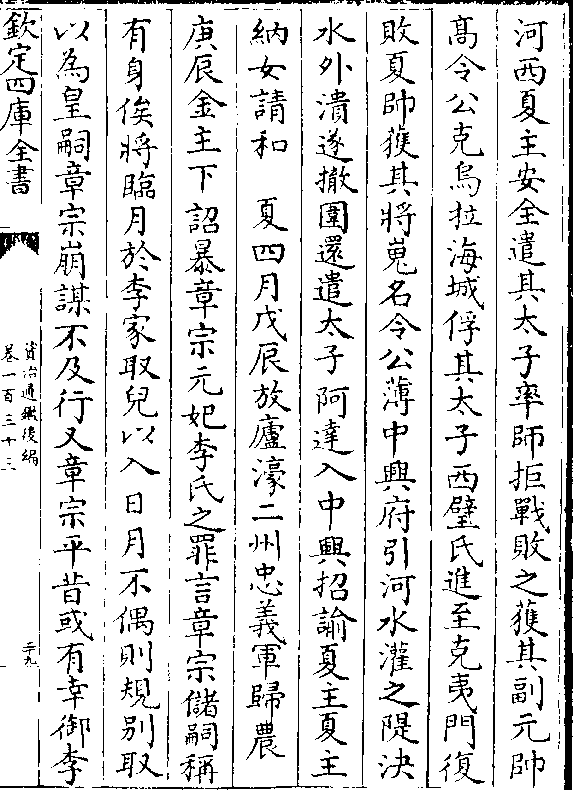 河西夏主安全遣其太子率師拒戰敗之獲其副元帥
髙令公克烏拉海城俘其太子西壁氏進至克夷門復
敗夏帥獲其將嵬名令公薄中興府引河水灌之隄決
水外潰遂撤圍還遣太子阿達入中興招諭夏主夏主
納女請和　夏四月戊辰放廬濠二州忠義軍歸農
庚辰金主下詔暴章宗元妃李氏之罪言章宗儲嗣稱
有身俟將臨月於李家取兒以入日月不偶則規别取
以為皇嗣章宗崩謀不及行又章宗平昔或有幸御李
欽定四庫全書
資治通鑑後編
卷一百三十三
二九